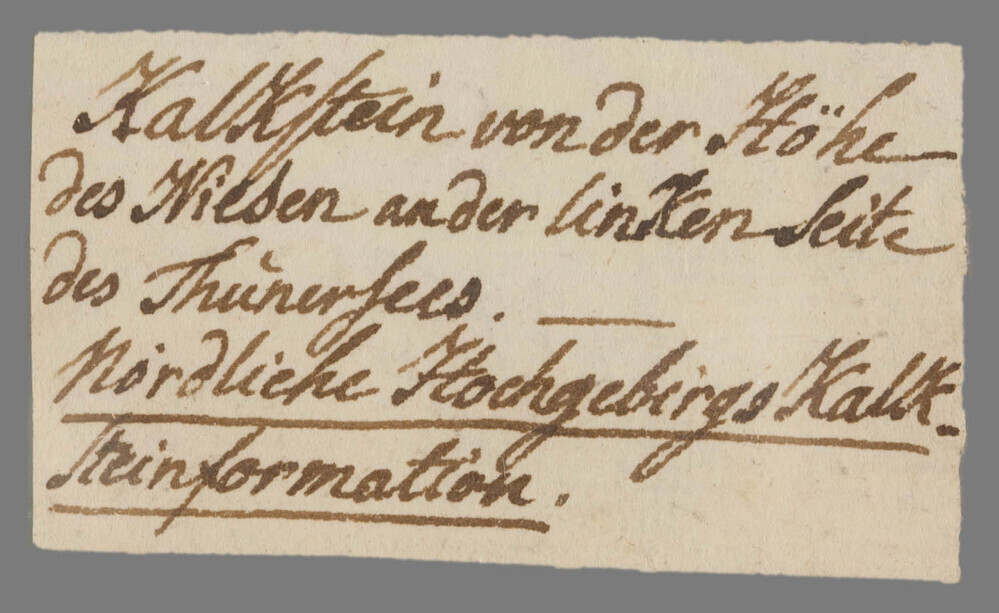 Kalkstein von der Höhe
des Niesen an der linken Seite
des Thunersees. —
Nördliche Hochgebirgs Kalk-
steinformation.